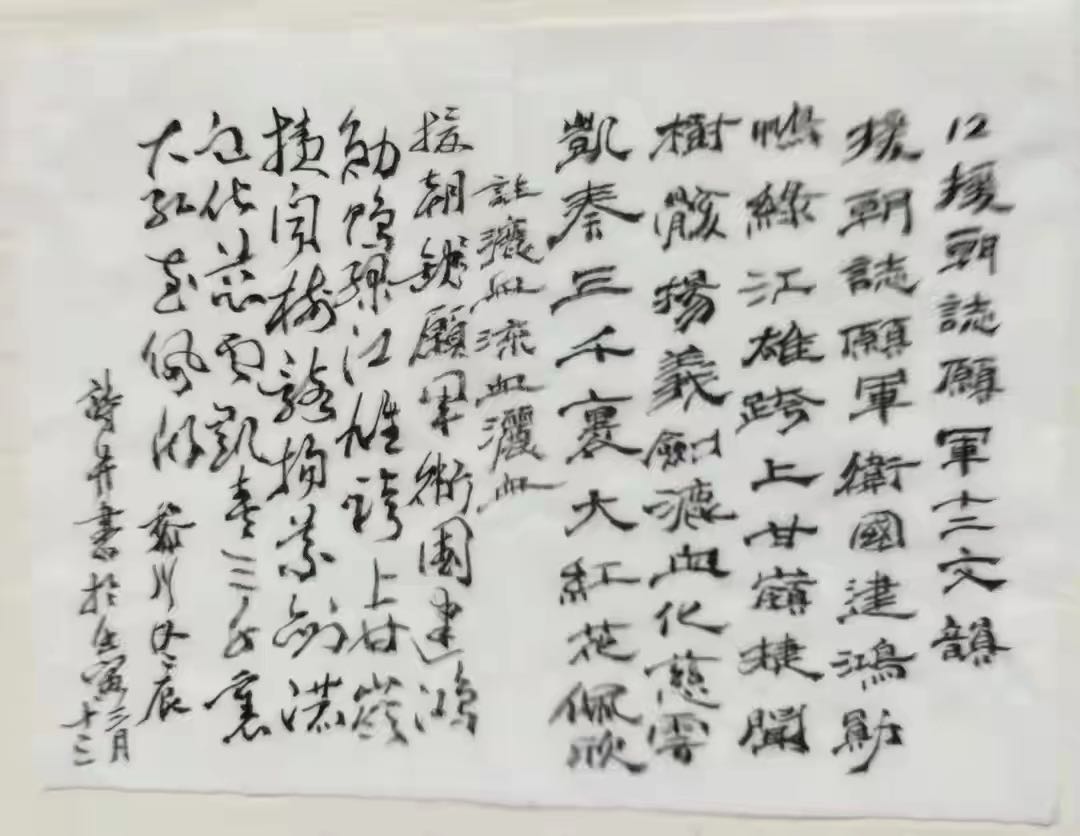 12援朝誌願軍十二文韻
援朝誌願軍衛國建鴻勛
鴨綠江雄跨上甘嶺捷聞
樹骸揚義劍漉血化慈雲
凱奏三千裏大紅花佩欣
註瀌血流血灑血
援朝誌願軍衛國建鴻
勛鴨綠江雄跨上甘嶺
捷聞樹骸揚義劍漉
血化慈雲凱奏三千裏
大紅花佩欣
詩并書於壬寅三月十二